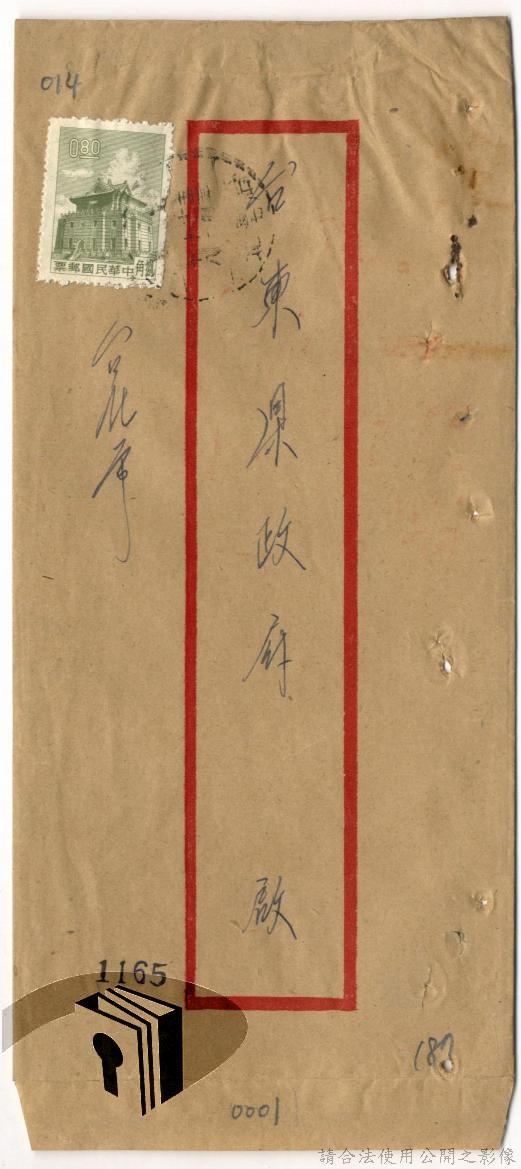 014
0.80
票郵國民華中
角捌
台東県政府 啟
1165
187
0001
請合法使用公開之影像